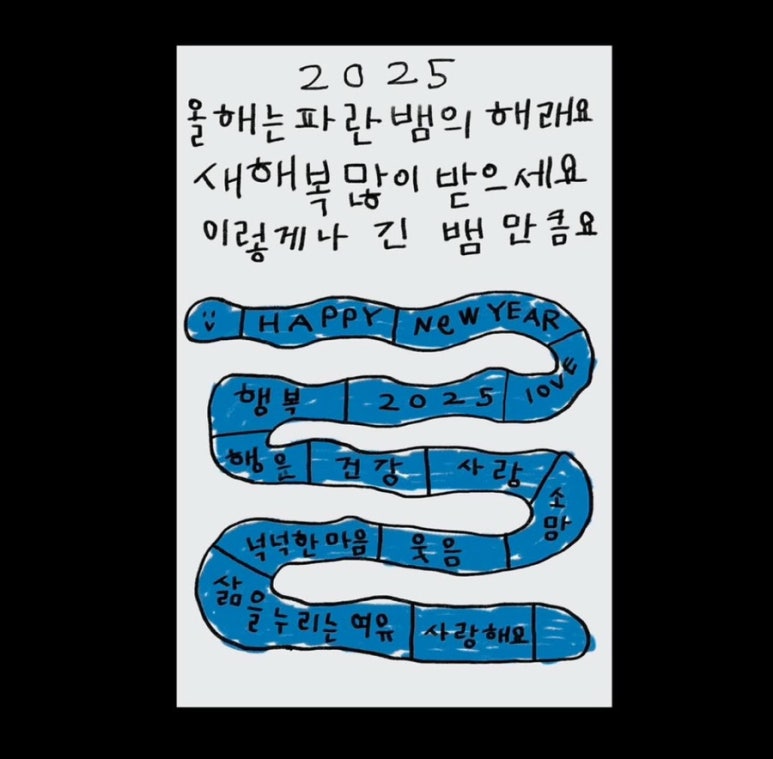 2025
올해는 파란 뱀의 해래요
새해복 많이 받으세요
이렇게나 긴 뱀 만큼요
HAPPY NeW YEAR
lOVE
2025 행복
행운 건강 사랑
소망
웃음 넉넉한 마음
삶을 누리는 여유 사랑해요